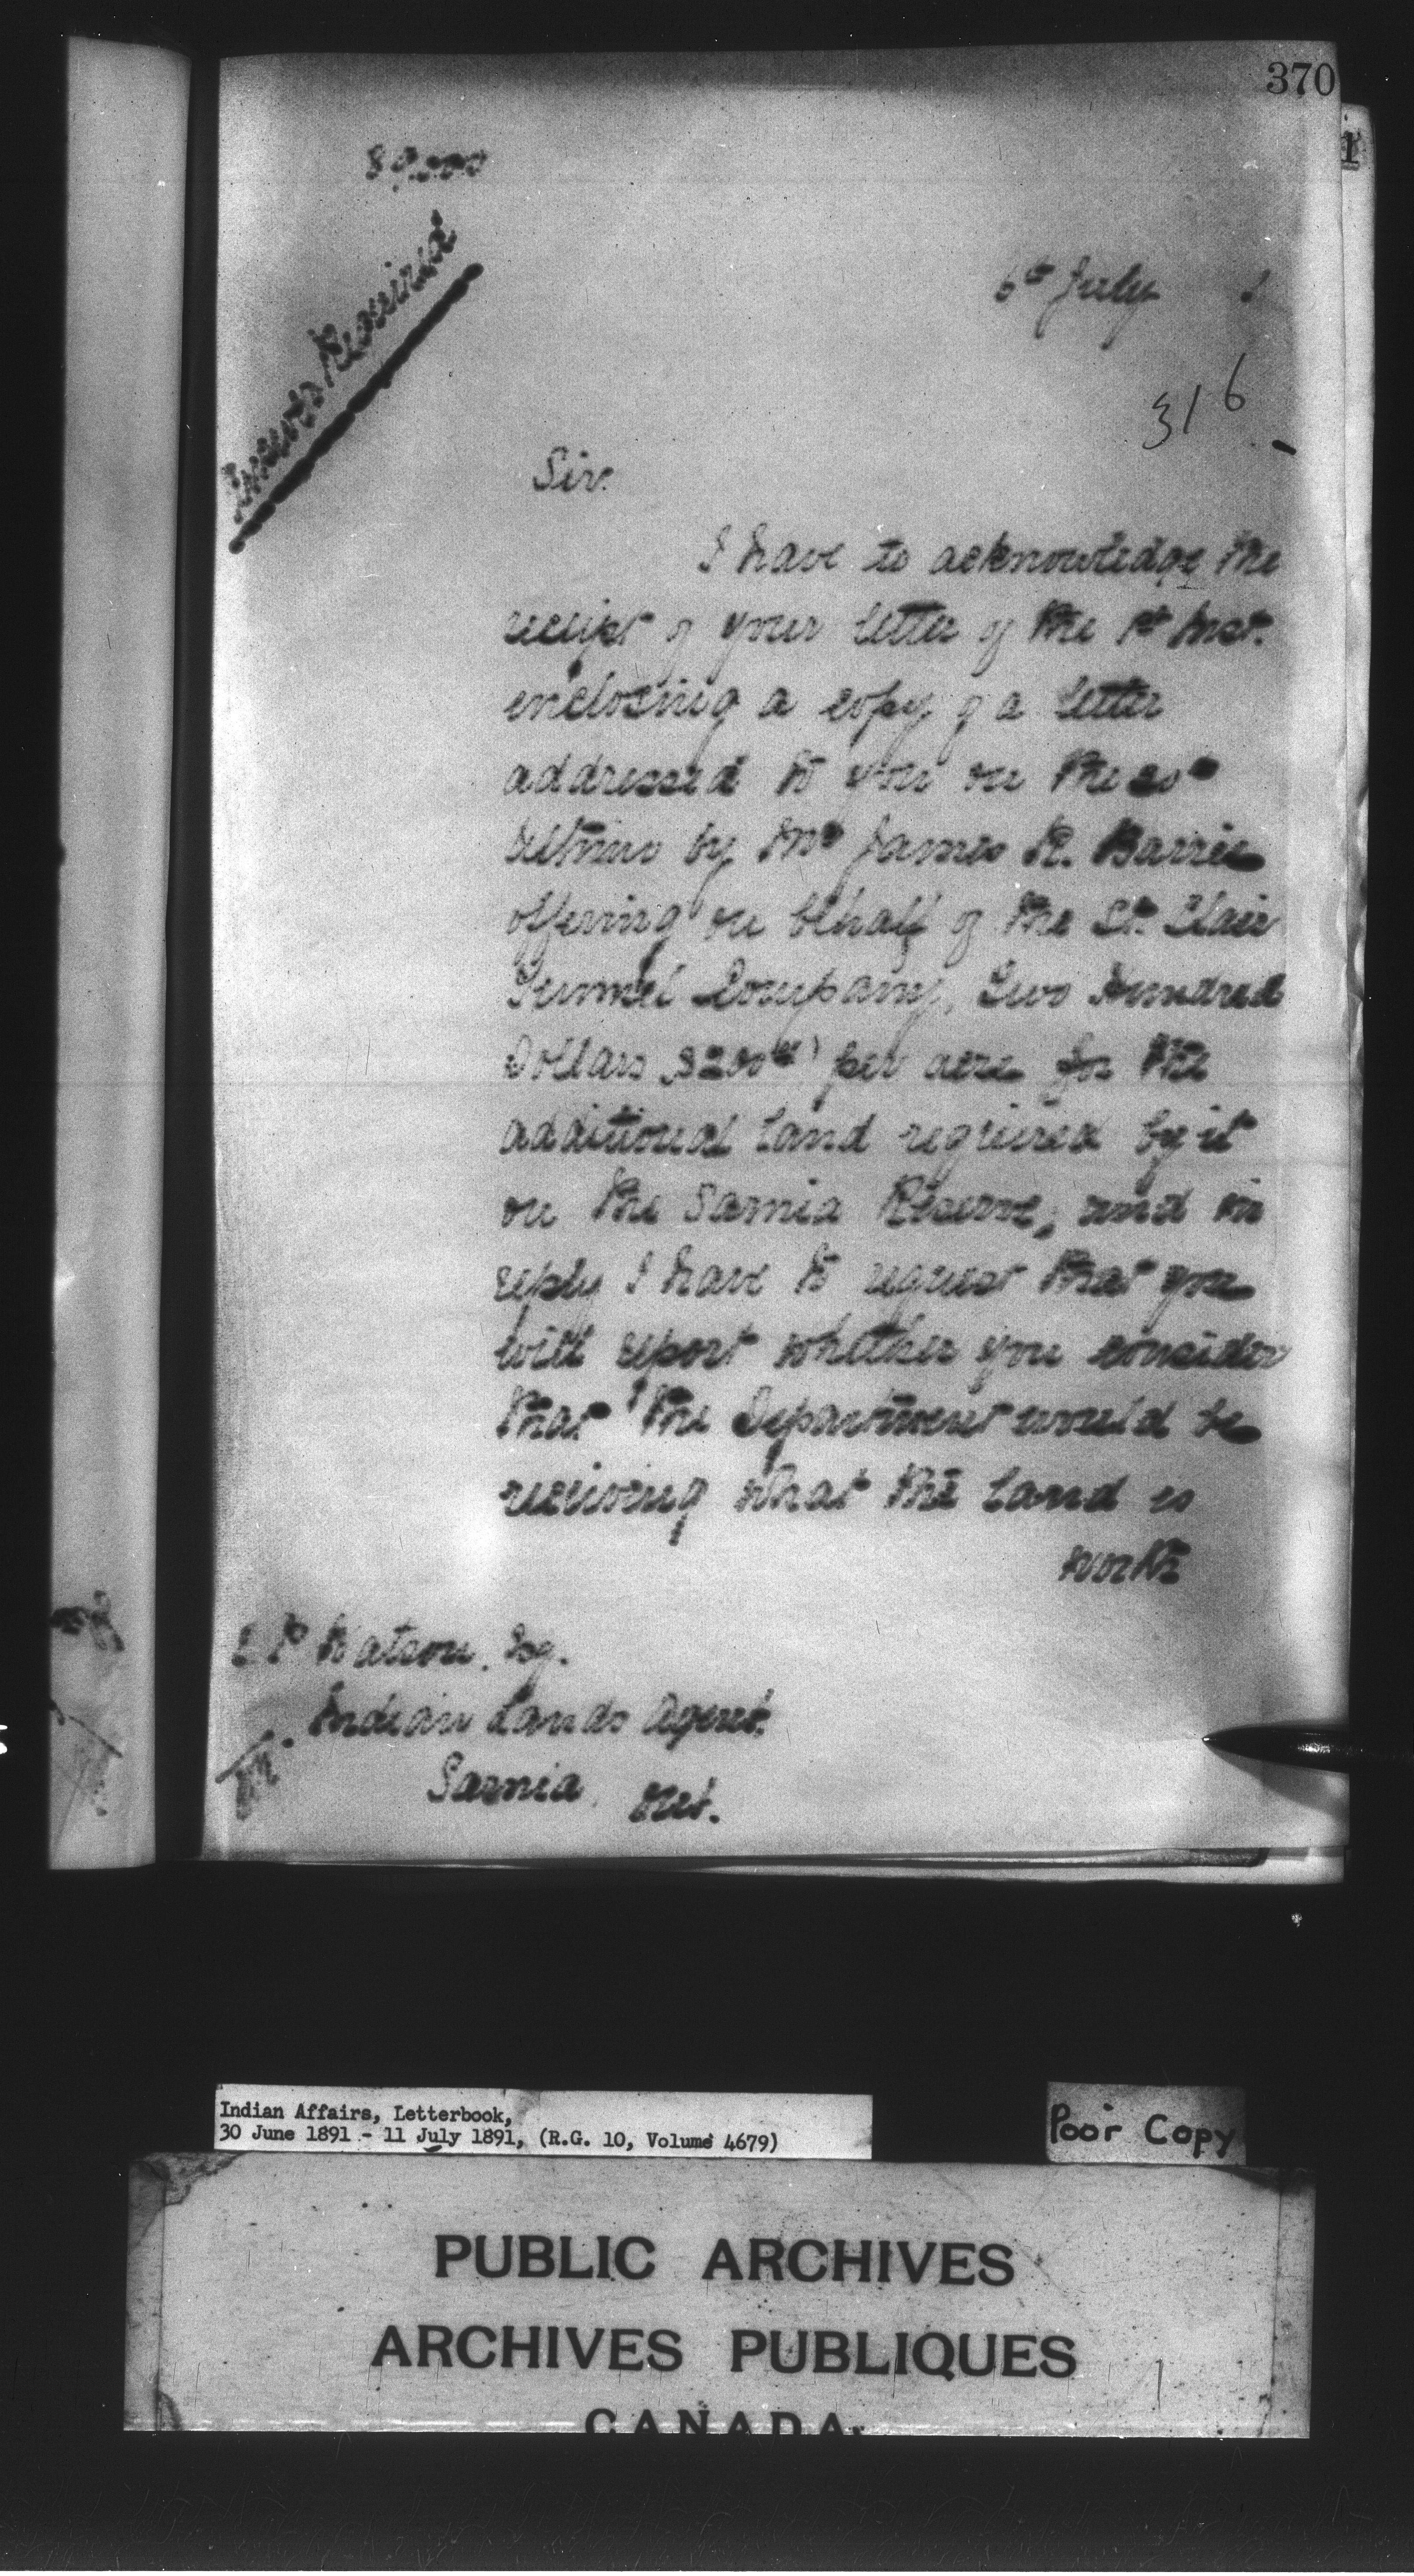 370
6th July 1
316
Sir.
I have to acknowledge the
receipt of your letter of the 1st Inst.
enclosing a copy of a letter
addressed to you on the
by Mr James R. Barrie
offering on behalf of the St. Clair
Tunnel Company, Two Hundred
Dollars $200 per acre for the
additional land required by it
on the Sarnia Reserve, and in
reply I have to request that you
will report whether you consider
that the Department would be
receiving what the land is
worth
Watson. Esq.
Indian Lands Agent.
Sarnia. Ont.
Indian Affairs, Letterbook,
30 June 1891 - 11 July 1891, (R.G. 10, Volume 4679)
Poor Copy
PUBLIC ARCHIVES
ARCHIVES PUBLIQUES
CANADA